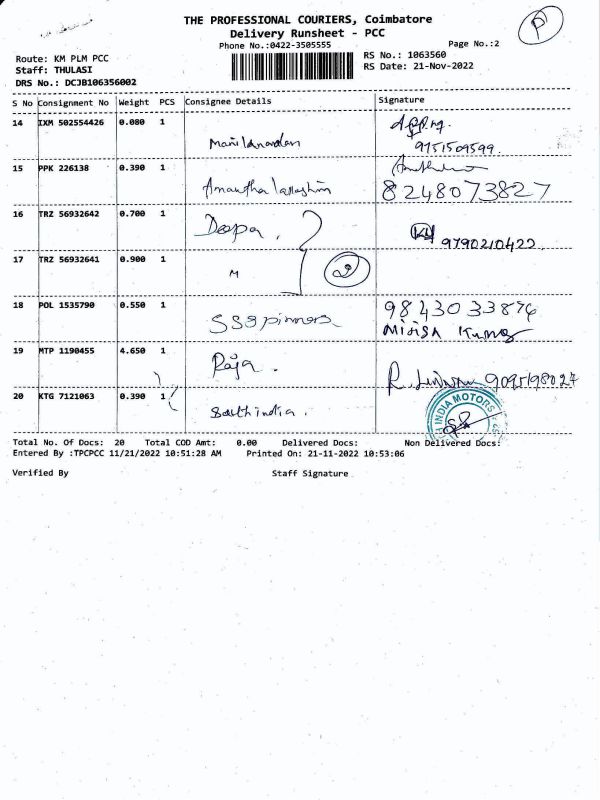 THE PROFESSIONAL COURIERS, Coimbatore
Delivery Runsheet - PCC
Phone No.:0422-3505555
Page No.:2
P
Route: KM PLM PCC
Staff: THULASI
DRS No.: DCJB106356002
RS No.: 1063560
RS Date: 21-Nov-2022
S No Consignment No Weight PCS Consignee Details Signature
14 IXM 502554426 0.080 1 Manikandan
9751509599
15 PPK 226138 0.390 1
8248073827
16 TRZ 56932642 0.700 1 Deepa.
9790210422
17 TRZ 56932641 0.900 1 M 2
18 POL 1535790 0.550 1 SSS pinners 9843033876
19 MTP 1190455 4.650 1 Raja. R. 9095198027
20 KTG 7121063 0.390 1 South india.
INDIA MOTORS
Total No. Of Docs: 20 Total COD Amt: 0.00 Delivered Docs: Non Delivered Docs:
Entered By :TPCPCC 11/21/2022 10:51:28 AM Printed On: 21-11-2022 10:53:06
Verified By Staff Signature